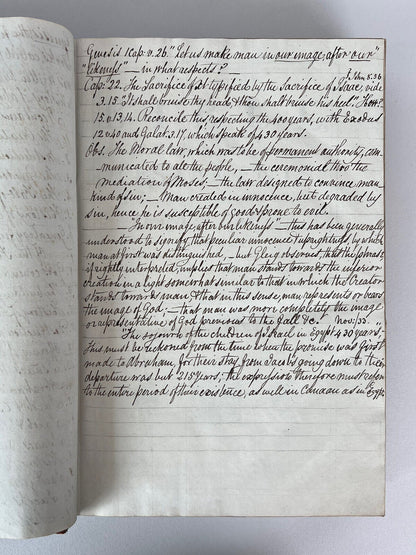 Genesis 1 Cap. v. 26 "Let us make man in our image, after our"
"likeness" — in what respects? —
John 8.56
Cap: 22. The Sacrifice of Xt typified by the Sacrifice of Isaac, vide
3.15 It shall bruise thy head & thou shalt bruise his heel." How?
15 v. 13.14. Reconcile this, respecting the 400 years, with Exodus
12 v 40 and Galat. 3.17, which speak of 430 years.
Obs. The Moral Law, which was to be of permanent authority, com-
municated to all the people, — the ceremonial thro the
mediation of Moses; — the law designed to convince man
kind of sin; — Man created in innocence, but degraded by
sin, hence he is susceptible of good & prone to evil.
"In our image after our likeness" — this has been generally
understood to signify that peculiar innocence & uprightness, by which
man at first was distinguished, — but Gleig observes, that this phrase,
if rightly interpreted, implies that man stands towards the inferior
creation in a light somewhat similar to that in which the Creator
stands towards man, & that in this sense, man represents or bears
the image of God; — that man was more completely the image
or representative of God previous to the fall &c.
The sojourn of the children of Israel in Egypt 430 years"
This must be reckoned from the time when the promise was first
made to Abraham, for their stay, from Jacob's going down to their
departure was but 215 years; the expression therefore must refer
to the entire period of their existence, as well in Canaan as in Egypt